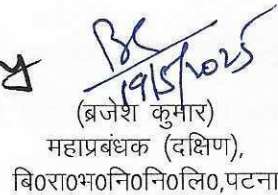 19/5/2025
(ब्रजेश कुमार)
महाप्रबंधक (दक्षिण),
बि०रा०भ०नि०नि०लि०,पटना